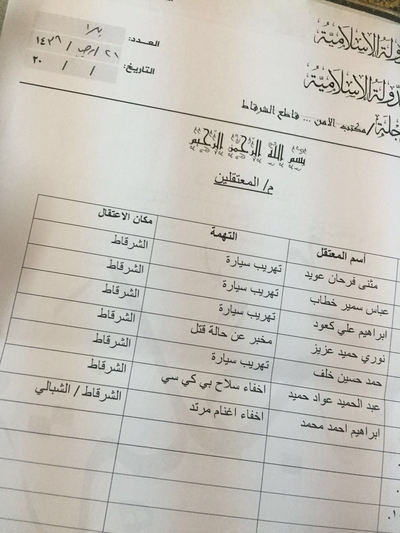 الدولة الإسلامية
الدولة الإسلامية
العدد: ١/م
التاريخ: ٢١ / رجب / ١٤٣٦
/ / ٢٠
/مكتب الامن ... قاطع الشرقاط
بسم الله الرحمن الرحيم
م/ المعتقلين
أسم المعتقل التهمة مكان الاعتقال
مثنى فرحان عويد تهريب سيارة الشرقاط
عباس سمير خطاب تهريب سيارة الشرقاط
ابراهيم علي كعود تهريب سيارة الشرقاط
نوري حميد عزيز مخبر عن حالة قتل الشرقاط
حمد حسين خلف تهريب سيارة الشرقاط
عبد الحميد عواد حميد اخفاء سلاح بي كي سي الشرقاط
ابراهيم احمد محمد اخفاء اغنام مرتد الشرقاط / الشبالي